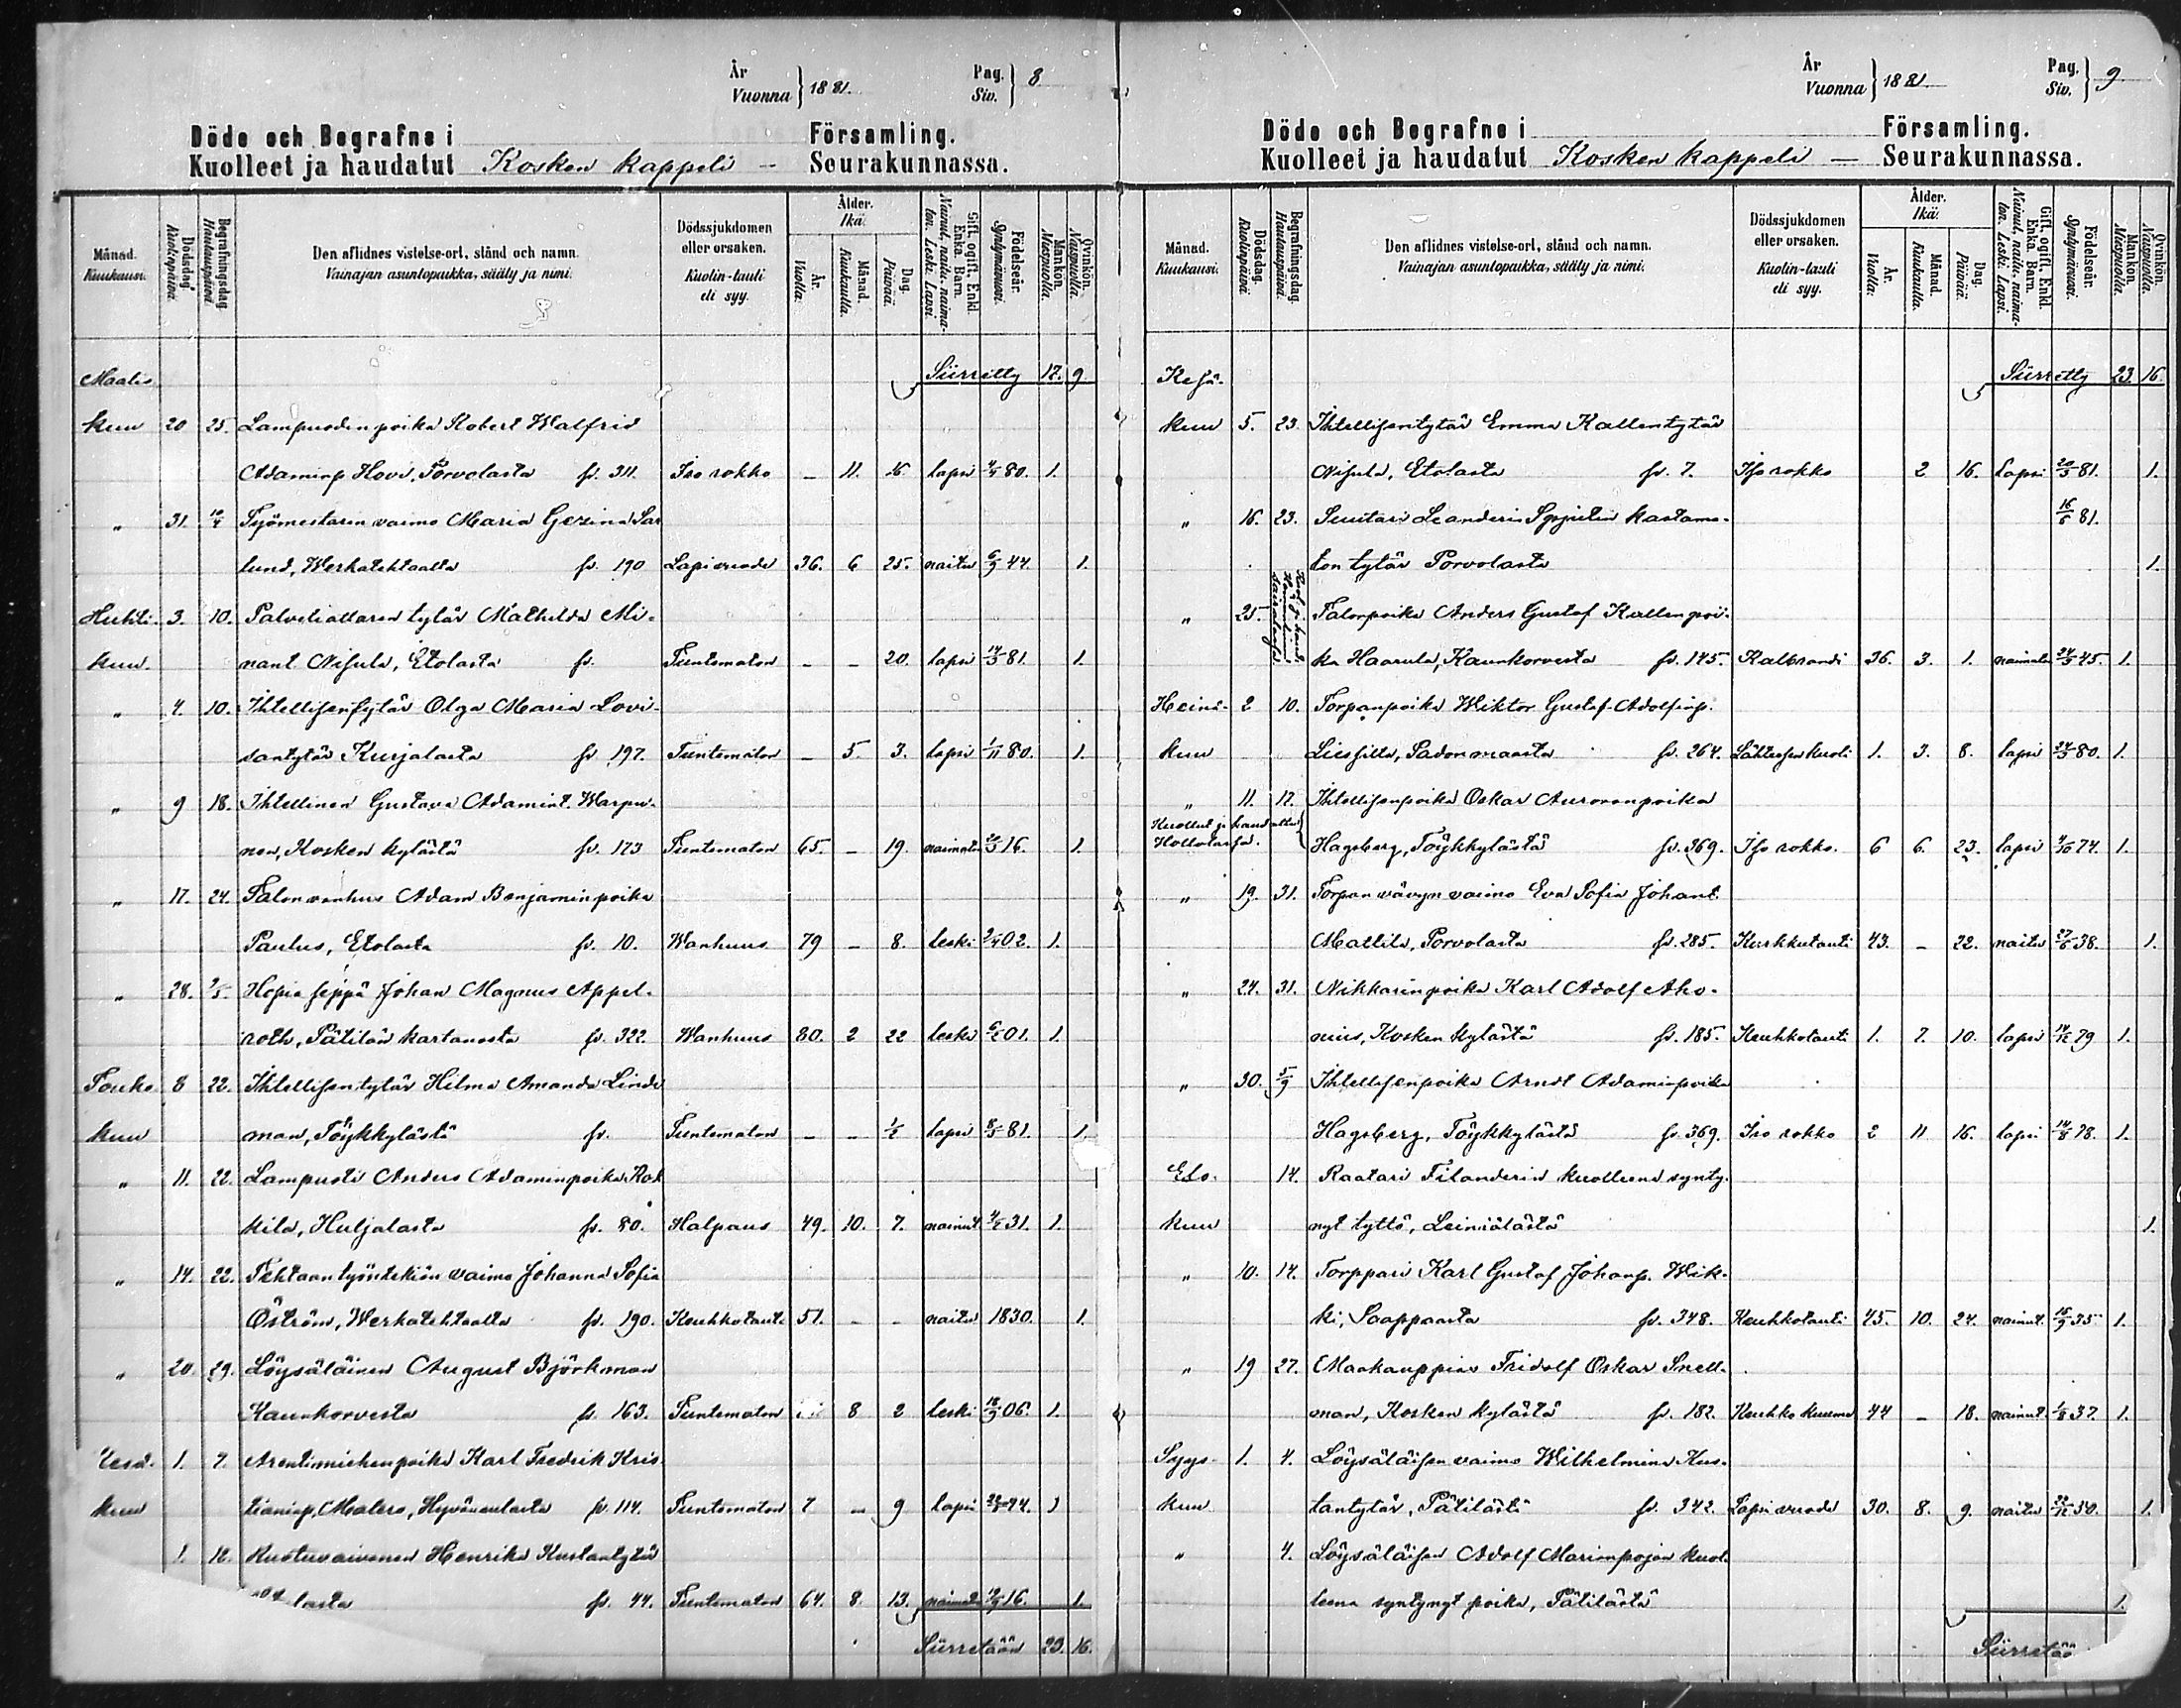 År
Vuonna } 1881.
Pag.
Siv. } 8
Döde och Begrafne i Församling.
Kuolleet ja haudatut Kosken kappeli – Seurakunnassa.
Månad. Kuukausi. Dödsdag. Kuolinpäivä. Begrafningsdag. Hautauspäivä. Den aflidnes vistelse-ort, stånd och namn. Vainajan asuntopaikka, sääty ja nimi. Dödssjukdomen eller orsaken. Kuolin-tauti eli syy. Ålder. Ikä. År. Vuotta. Månad. Kuukautta. Dag. Päivää. Gift, ogift, Enkl. Enka. Barn. Nainut, naitu, naimaton. Leski. Lapsi. Födelseår. Syntymävuosi. Mankön. Miespuolta. Qvinkön. Naispuolta.
Maalis Siirretty 17. 9.
kuu 20 25. Lampuodin poika Robert Walfrid
Adaminp. Hovi, Porvolasta fv. 311. Iso rokko – 11. 16. lapsi 4/4 80. 1.
„ 31. 10/4 Työmestarin vaimo Maria Gezina Sar
lund, Werkatehtaalta fv. 190 Lapsivuode 36. 6 25. naitu 6/9 44. 1.
Huhti- 3. 10. Palveliattaren tytär Mathilda Mi-
kuu. nant Nisula, Etolasta fv. Tuntematon – – 20. lapsi 14/3 81. 1.
„ 4. 10. Ihtellisentytär Olga Maria Lovi-
santytär Kurjalasta fv 197. Tuntematon – 5. 3. lapsi 1/11 80. 1.
„ 9 18. Ihtellinen Gustava Adamint. Warpu-
nen, Kosken kylästä fv. 173 Tuntematon 65. – 19. naimaton 20/3 16. 1.
„ 17. 24. Talon vanhus Adam Benjaminpoika
Paulus, Etolasta fv. 10. Wanhuus 79 – 8. leski 9/4 02. 1.
„ 28. 9/5. Hopia seppä Johan Magnus Appel-
roth, Pätilän kartanosta fv. 322. Wanhuus 80. 2 22 leski 6/2 01. 1.
Touko 8 22. Ihtellisentytär Hilma Amanda Linde
kuu man, Töykkylästä fv. Tuntematon – – 1/2 lapsi 8/5 81. 1.
„ 11. 22. Lampuoti Anders Adaminpoika Rok
kila, Huljalasta fv. 80. Halpaus 49. 10. 7. nainut 4/7 31. 1.
„ 14. 22. Tehtaan työntekiän vaimo Johanna Sofia
Öström, Werkatehtaalta fv. 190. Keuhkotauti 51. – – naitu 1830. 1.
„ 20. 29. Löysäläinen August Björkman
Kaunkorvesta fv. 163. Tuntematon 8 2 leski 18/9 06. 1.
Kesä- 1. 7. Arentimiehen poika Karl Fredrik Kris
kuu tianinp. Malers, Hyvänealasta fv. 114. Tuntematon 7 – 9 lapsi 23/5 74. 1
1. 12. Ruotuvaivanen Henrika Kustantytär
lasta fv. 44. Tuntematon 64. 8. 13. naimaton 19/9 16. 1.
Siirretään 23. 16.
År
Vuonna } 1881.
Pag.
Siv. } 9
Döde och Begrafne i Församling.
Kuolleet ja haudatut Kosken kappeli – Seurakunnassa.
Månad. Kuukausi. Dödsdag. Kuolinpäivä. Begrafningsdag. Hautauspäivä. Den aflidnes vistelse-ort, stånd och namn. Vainajan asuntopaikka, sääty ja nimi. Dödssjukdomen eller orsaken. Kuolin-tauti eli syy. Ålder. Ikä. År. Vuotta. Månad. Kuukautta. Dag. Päivää. Gift, ogift, Enkl. Enka. Barn. Nainut, naitu, naimaton. Leski. Lapsi. Födelseår. Syntymävuosi. Mankön. Miespuolta. Qvinkön. Naispuolta.
Kesä- Siirretty 23. 16.
kuu 5. 23. Ihtellisentytär Emma Kallentytär
Nisula, Etolasta fv. 7. Iso rokko 2 16. Lapsi 20/3 81. 1.
„ 16. 23. Suutari Leanderin kastama- 16/6 81.
ton tytär Porvolasta 1.
„ 25. Talonpoika Anders Gustaf Kallen poi-
ka Haarula, Kaunkorvesta fv. 145. Kalbrandi 36. 3. 1. naimaton 24/3 45. 1.
Heinä- 2 10. Torpanpoika Wiktor Gustaf Adolfinp.
kuu Liesjilta, Padonmaasta fv. 264. 1. 3. 8. lapsi 24/3 80. 1.
„ 11. 17. Ihtellisenpoika Oskar Auroranpoika
Kuollut ja haudattu Hollolassa. } Hagsberg, Töykkylästä fv. 369. Iso rokko. 6 6. 23. lapsi 4/10 74. 1.
„ 19. 31. Torpan vävyn vaimo Eva Sofia Johant.
Mattila, Porvolasta fv. 285. Kurkkutauti 43. – 22. naitu 27/6 38. 1.
„ 24. 31. Nikkarinpoika Karl Adolf Aho-
nius, Kosken kylästä fv. 185. Keuhkotauti 1. 7. 10. lapsi 14/12 79 1.
„ 30. 5/9 Ihtellisenpoika Arndt Adaminpoika
Hagsberg, Töykkylästä fv. 369. Iso rokko 2 11 16. lapsi 14/8 78. 1.
Elo- 14. Raatari Filanderin kuolleena synty-
kuu nyt tyttö, Leiniälästä 1.
„ 10. 14. Torppari Karl Gustaf Johanp. Wik-
ki, Saappaasta fv. 348. Keuhkotauti 45. 10. 24. nainut. 16/9 35 1.
„ 19 27. Maakauppias Fridolf Oskar Snell-
man, Kosken kylästä fv. 182. Keuhko kuume 44 – 18. nainut. 1/8 37. 1.
Syys- 1. 4. Löysäläisen vaimo Wilhelmina Kus-
kuu tantytär, Pätilästä fv. 342. Lapsivuode 30. 8. 9. naitu 22/12 50. 1.
„ 4. Löysäläisen Adolf Marianpojan kuol-
leena syntynyt poika, Pätilästä 1.
Siirretää